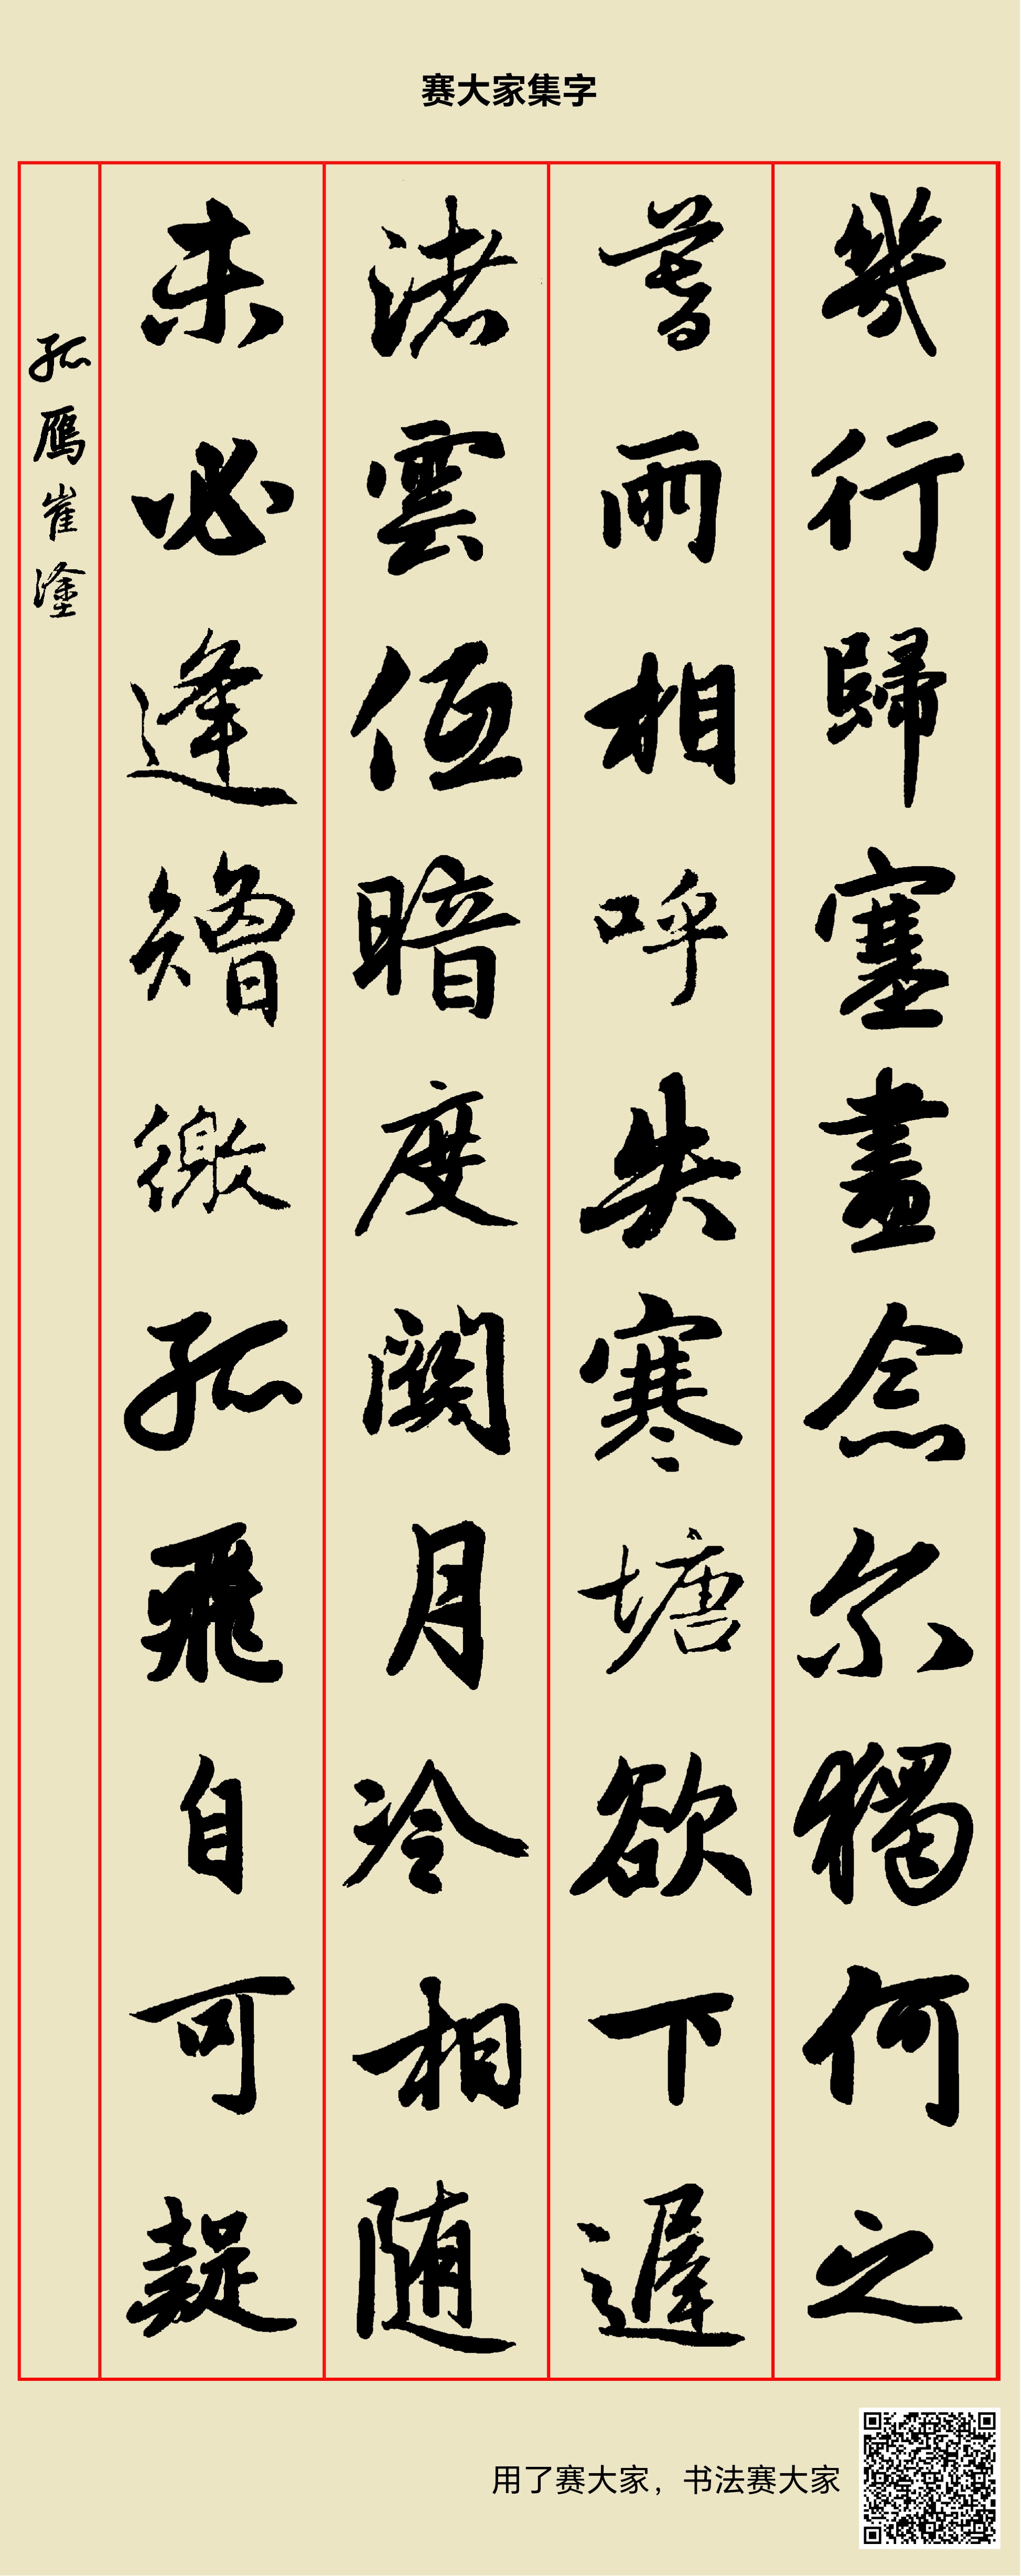 赛大家集字
幾行歸塞盡念尔獨何之
暮雨相呼失寒塘欲下遲
渚雲低暗度關月冷相随
未必逢矰繳孤飛自可疑
孤鴈崔塗
用了赛大家，书法赛大家